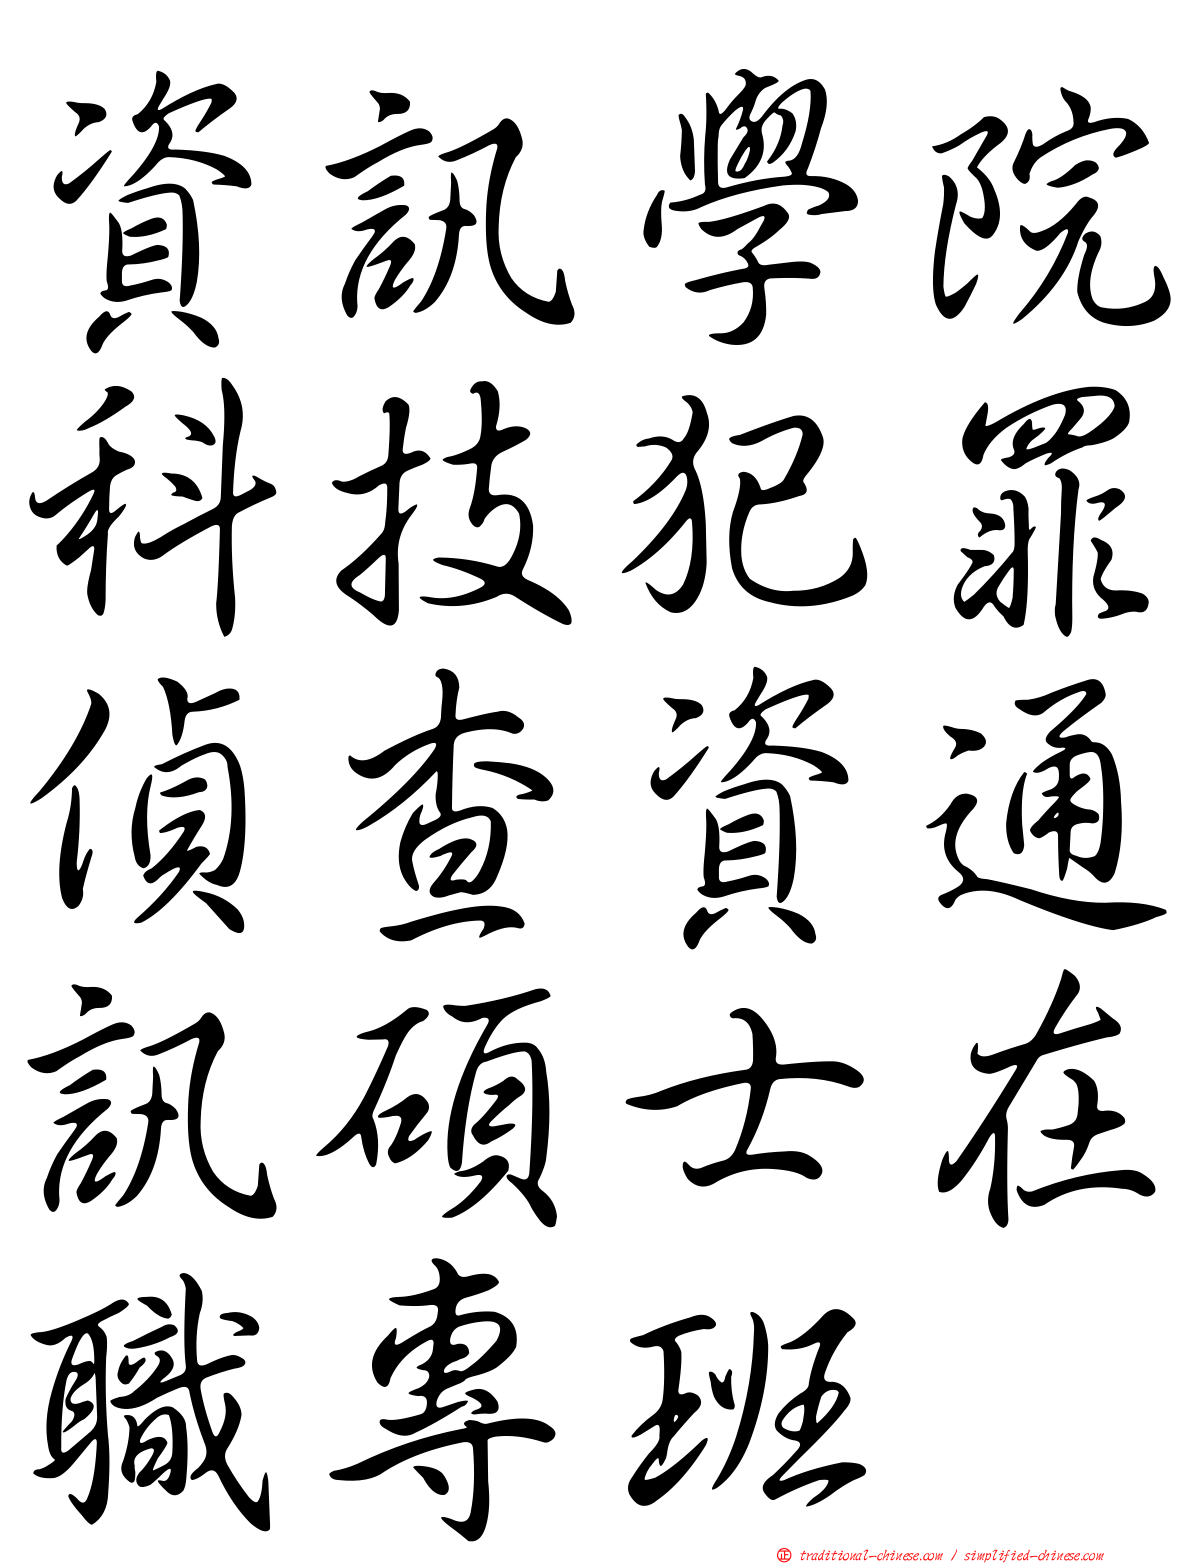 資訊學院
科技犯罪
偵查資通
訊碩士在
職專班
正 traditional-chinese.com / simplified-chinese.com